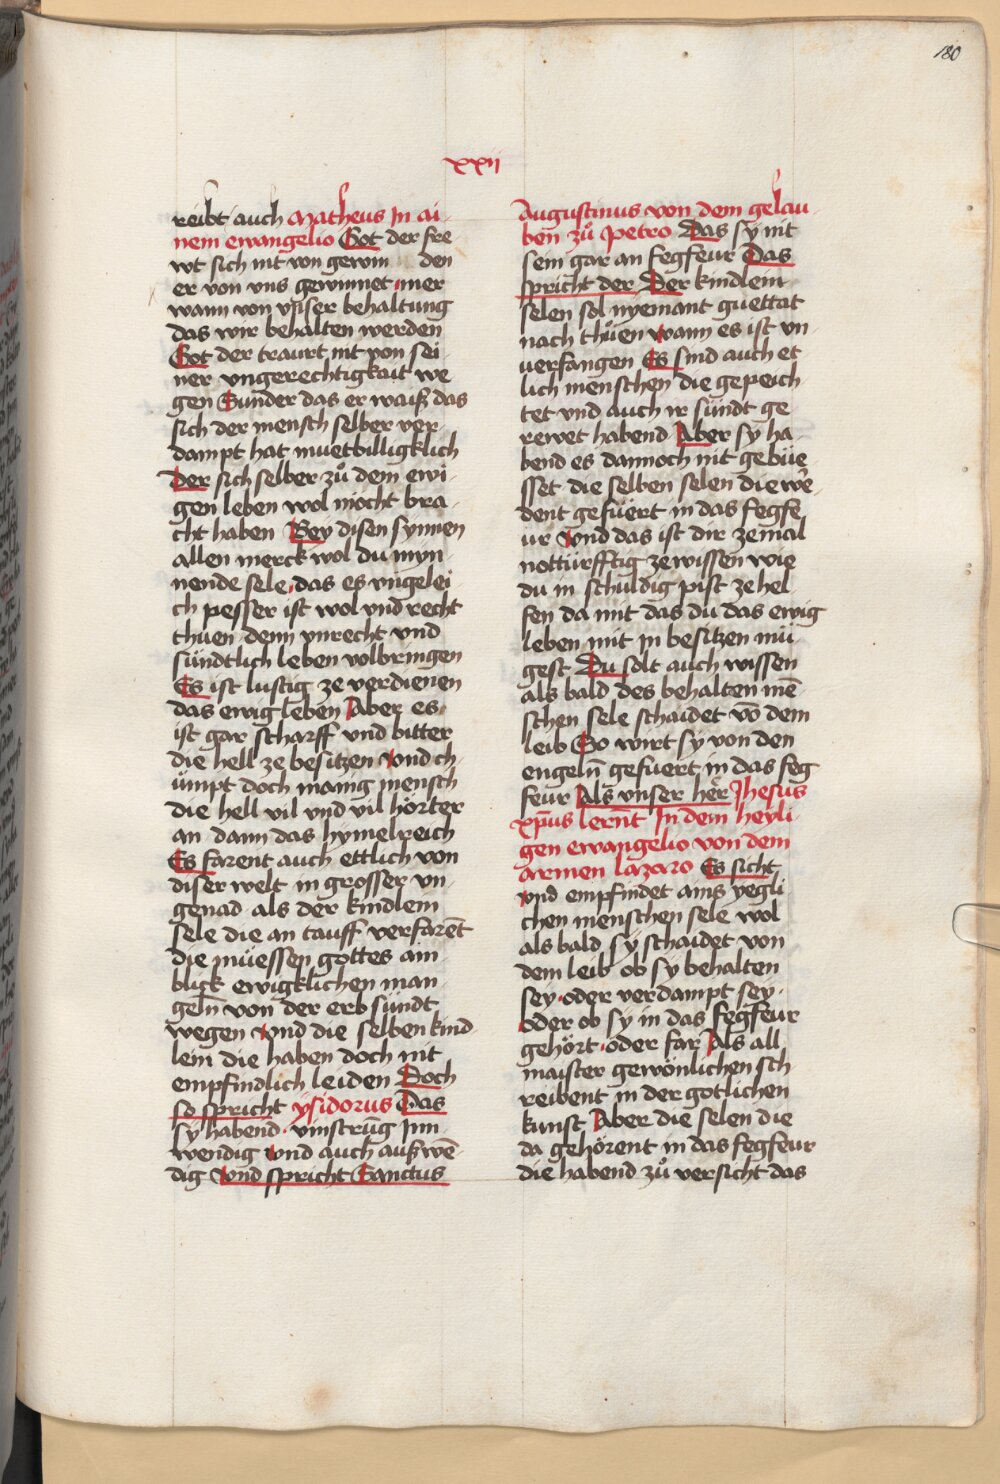 180
xxij
reibt auch Matheus In ai-
nem ewangelio Got der fre-
wt sich nit von gewin den
er von vns gewinnet mer
wann von vnser behaltung
das wir behalten werden
Got der traurt nit von sei-
ner vngerechtigkait we
gen Sunder das er waiß das
sich der mensch selber ver
dampt hat muetbilligklich
Der sich selber zů dem ewi-
gen leben wol mocht bra-
cht haben Bey disen synnen
allen merck wol du myn-
nende sele das es vngelei
ch pesser ist wol vnd recht
thuen denn vnrecht vnd
sündtlich leben volbringen
Es ist lustig ze verdienen
das ewig leben Aber es
ist gar scharff vnd bitter
die hell ze besitzen Vnd ch-
ůmpt doch manig mensch
die hell vil vnd vil hörter
an dann das hymelreich
Es farent auch ettlich von
diser welt in grosser vn-
genad als der kindlein
sele die an tauff verfarēt
die müessen gottes am
blick ewigklichen man-
geln̄ von der erb sündt
wegen Vnd die selben kind
lein die haben doch nit
empfindlich leiden Doch
so spricht ysidorus Das
sy habend vinstrūg Inn-
wendig Vnd auch außwē-
dig Vnd spricht Sanctus
Augustinus von dem gelau-
ben zů Petro Das sy nit
sein gar an fegfeur Das
spricht der Der kindlein
selen sol nyemant guettat
nach thůen wann es ist vn-
verfangen Es sind auch et
lich menschen die gepeich
tet vnd auch ir sündt ge
rewet habend Aber sy ha-
bend es dannoch nit gebüe
sset die selben selen die wē-
dent gefüert in das fegfe
ur Vnd das ist dir zemal
nottürfftig ze wissen wie
du in schuldig pist ze hel
fen da mit das du das ewig
leben mit in besitzen mü
gest Du solt auch wissen
als bald des behalten mē-
schen sele schaidet vō dem
leib So wirt sy von den
engeln̄ gefuert in das feg
feur Als vnser her Jhesus
xp̄us lernt In dem heyli-
gen ewangelio von dem
armen lazaro Es sicht
vnd empfindet ains yegli
chen menschen sele wol
als bald sy schaidet von
dem leib ob sy behalten
sey oder verdampt sey
oder ob sy in das fegfeur
gehört oder far Als all
maister gewönlichen sch
reibent in der gotlichen
kunst Aber die selen die
da gehörent in das fegfeur
die habend zů versicht das